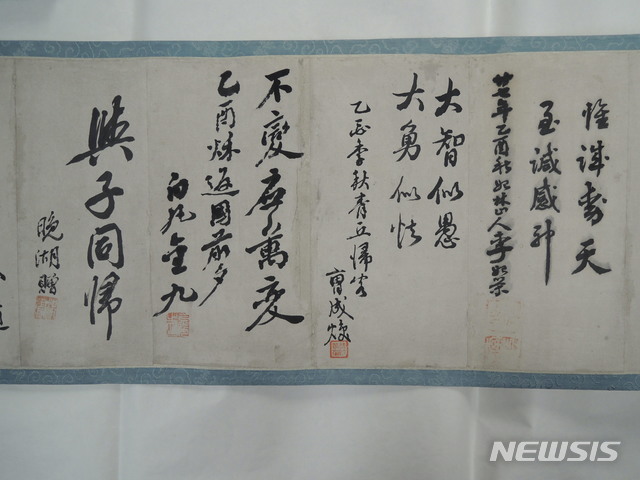 惟德動天
至諴感神
廿七年乙酉秋始林山人李始榮
大智似愚
大勇似怯
乙酉季秋青丘歸客
曺成煥
不變應萬變
乙酉秋返國前夕
白凡金九
與子同歸
晩湖贈
NEWSIS